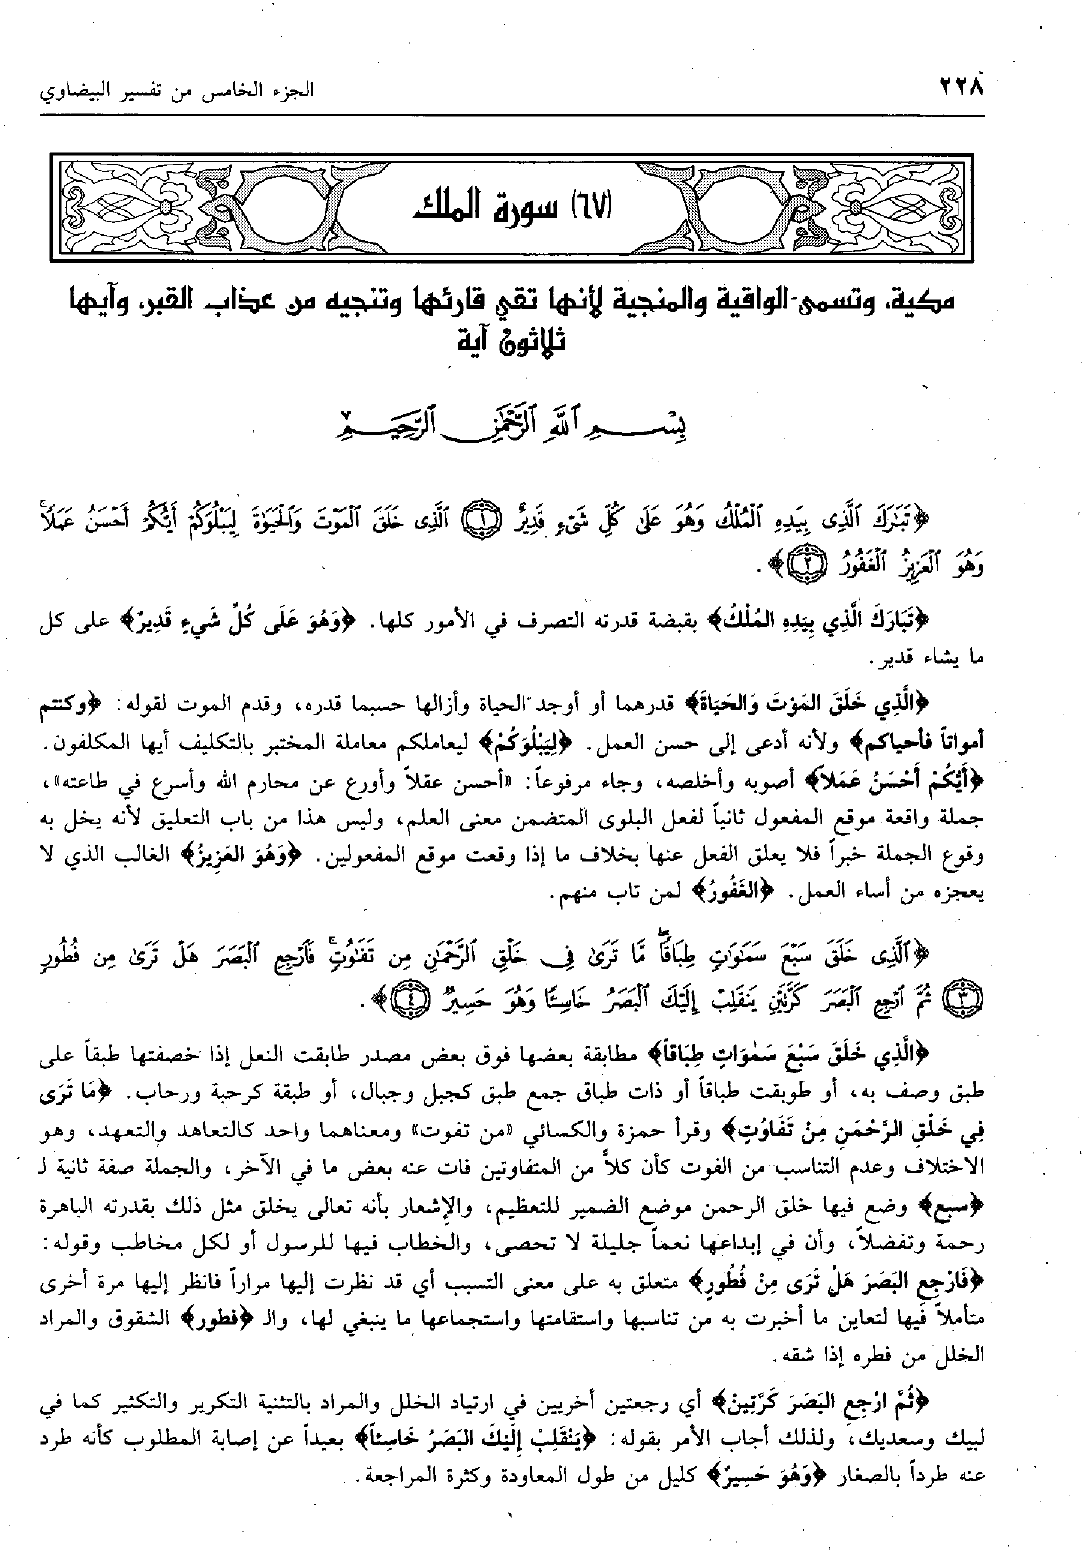 ٢٢٨
الجزء الخامس من تفسير البيضاوي
(٦٧) سورة الملك
مكية، وتسمى الواقية والمنجية لأنها تقي قارئها وتنجيه من عذاب القبر، وآيها
ثلاثون آية
بِسْمِ اللَّهِ الرَّحْمَٰنِ الرَّحِيمِ
﴿تَبَٰرَكَ ٱلَّذِى بِيَدِهِ ٱلْمُلْكُ وَهُوَ عَلَىٰ كُلِّ شَىْءٍ قَدِيرٌ ١ ٱلَّذِى خَلَقَ ٱلْمَوْتَ وَٱلْحَيَوٰةَ لِيَبْلُوَكُمْ أَيُّكُمْ أَحْسَنُ عَمَلًاۚ
وَهُوَ ٱلْعَزِيزُ ٱلْغَفُورُ ٢﴾.
﴿تَبَارَكَ الَّذِي بِيَدِهِ المُلْكُ﴾ بقبضة قدرته التصرف في الأمور كلها. ﴿وَهُوَ عَلَى كُلِّ شَيءٍ قَدِيرٌ﴾ على كل
ما يشاء قدير.
﴿الَّذِي خَلَقَ المَوْتَ وَالحَيَاةَ﴾ قدرهما أو أوجد الحياة وأزالها حسبما قدره، وقدم الموت لقوله: ﴿وكنتم
أمواتاً فأحياكم﴾ ولأنه أدعى إلى حسن العمل. ﴿لِيَبْلُوَكُمْ﴾ ليعاملكم معاملة المختبر بالتكليف أيها المكلفون.
﴿أَيُّكُمْ أَحْسَنُ عَمَلاً﴾ أصوبه وأخلصه، وجاء مرفوعاً: «أحسن عقلاً وأورع عن محارم الله وأسرع في طاعته»،
جملة واقعة موقع المفعول ثانياً لفعل البلوى المتضمن معنى العلم، وليس هذا من باب التعليق لأنه يخل به
وقوع الجملة خبراً فلا يعلق الفعل عنها بخلاف ما إذا وقعت موقع المفعولين. ﴿وَهُوَ العَزِيزُ﴾ الغالب الذي لا
يعجزه من أساء العمل. ﴿الغَفُورُ﴾ لمن تاب منهم.
﴿ٱلَّذِى خَلَقَ سَبْعَ سَمَٰوَٰتٍ طِبَاقًاۖ مَّا تَرَىٰ فِى خَلْقِ ٱلرَّحْمَٰنِ مِن تَفَٰوُتٍۖ فَٱرْجِعِ ٱلْبَصَرَ هَلْ تَرَىٰ مِن فُطُورٍ
٣ ثُمَّ ٱرْجِعِ ٱلْبَصَرَ كَرَّتَيْنِ يَنقَلِبْ إِلَيْكَ ٱلْبَصَرُ خَاسِئًا وَهُوَ حَسِيرٌ ٤﴾.
﴿الَّذِي خَلَقَ سَبْعَ سَمٰوَاتٍ طِبَاقاً﴾ مطابقة بعضها فوق بعض مصدر طابقت النعل إذا خصفتها طبقاً على
طبق وصف به، أو طوبقت طباقاً أو ذات طباق جمع طبق كجبل وجبال، أو طبقة كرحبة ورحاب. ﴿مَا تَرَى
فِي خَلْقِ الرَّحْمَنِ مِنْ تَفَاوُتٍ﴾ وقرأ حمزة والكسائي «من تفوت» ومعناهما واحد كالتعاهد والتعهد، وهو
الاختلاف وعدم التناسب من الفوت كأن كلاً من المتفاوتين فات عنه بعض ما في الآخر، والجملة صفة ثانية لـ
﴿سبع﴾ وضع فيها خلق الرحمن موضع الضمير للتعظيم، والإشعار بأنه تعالى يخلق مثل ذلك بقدرته الباهرة
رحمة وتفضلاً، وأن في إبداعها نعماً جليلة لا تحصى، والخطاب فيها للرسول أو لكل مخاطب وقوله:
﴿فَارْجِعِ البَصَرَ هَلْ تَرَى مِنْ فُطُورٍ﴾ متعلق به على معنى التسبب أي قد نظرت إليها مراراً فانظر إليها مرة أخرى
متأملاً فيها لتعاين ما أخبرت به من تناسبها واستقامتها واستجماعها ما ينبغي لها، والـ ﴿فطور﴾ الشقوق والمراد
الخلل من فطره إذا شقه.
﴿ثُمَّ ارْجِعِ البَصَرَ كَرَّتَيْنِ﴾ أي رجعتين أخريين في ارتياد الخلل والمراد بالتثنية التكرير والتكثير كما في
لبيك وسعديك، ولذلك أجاب الأمر بقوله: ﴿يَنْقَلِبْ إِلَيْكَ البَصَرُ خَاسِئاً﴾ بعيداً عن إصابة المطلوب كأنه طرد
عنه طرداً بالصغار ﴿وَهُوَ حَسِيرٌ﴾ كليل من طول المعاودة وكثرة المراجعة.